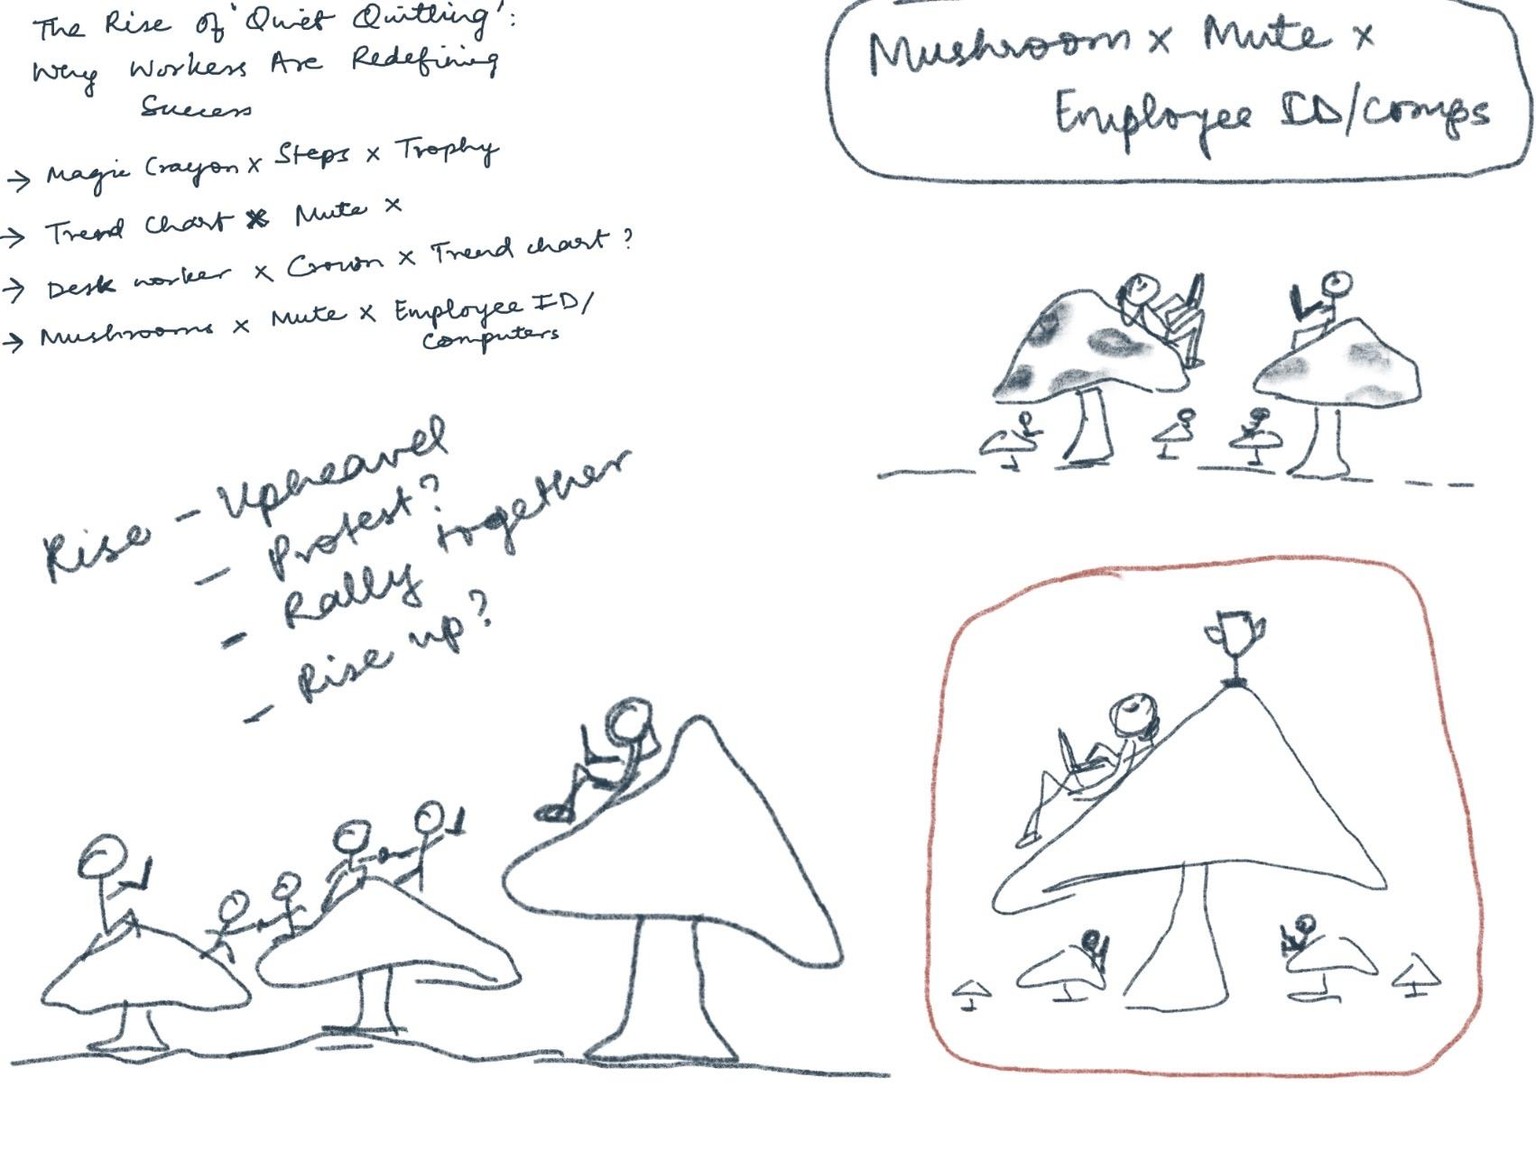 The Rise of 'Quiet Quitting':
Why Workers Are Redefining
Success
→ Magic Crayon x Steps x Trophy
→ Trend Chart x Mute x
→ Desk worker x Crown x Trend chart?
→ Mushrooms x Mute x Employee ID/
Computers
Mushroom x Mute x
Employee ID/comps
Rise - Upheavel
- Protest?
- Rally together
- Rise up?